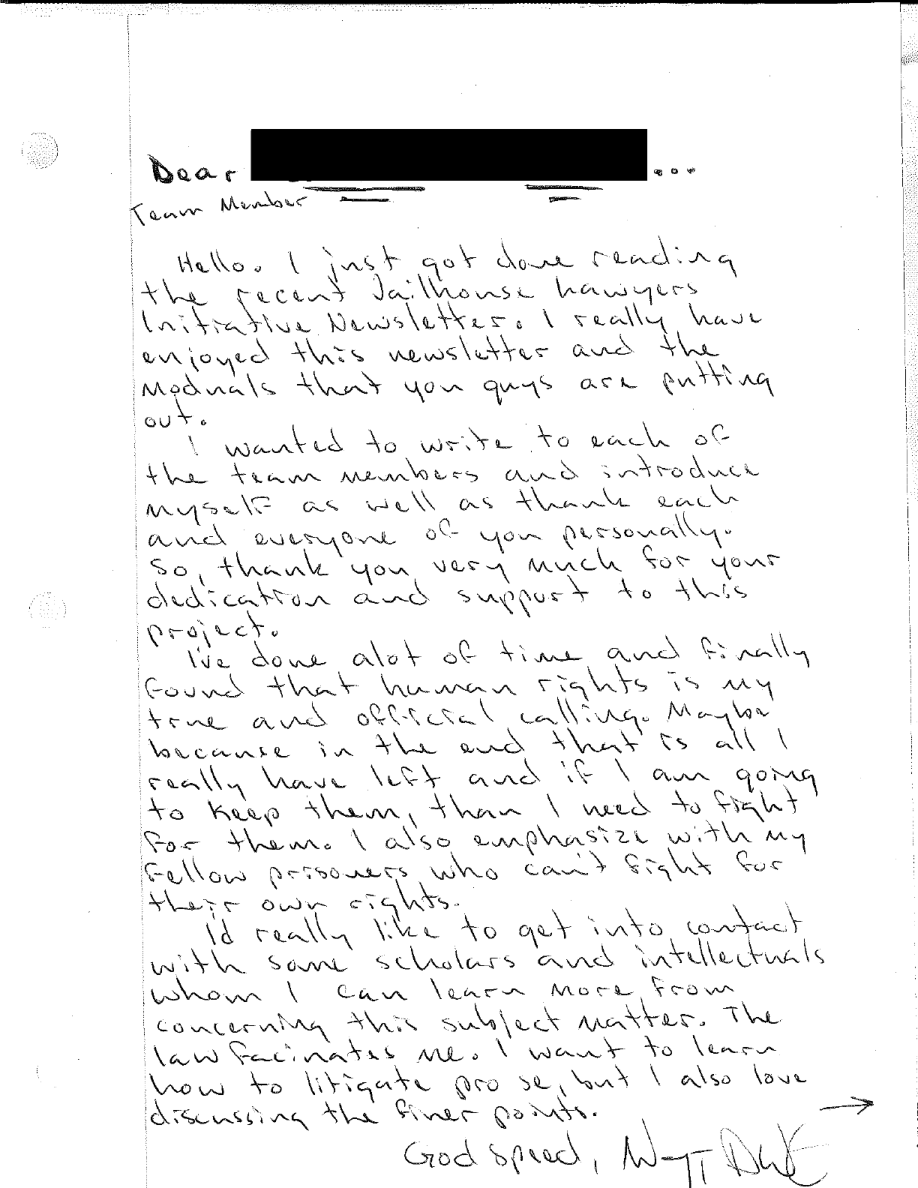 Dear ...
Team Member
Hello. I just got done reading
the recent Jailhouse Lawyers
Initiative Newsletter. I really have
enjoyed this newsletter and the
Moduals that you guys are putting
out.
I wanted to write to each of
the team members and introduce
myself as well as thank each
and everyone of you personally.
So, thank you very much for your
dedication and support to this
project.
I've done alot of time and finally
found that human rights is my
true and official calling. Maybe
because in the end that is all I
really have left and if I am going
to keep them, than I need to fight
for them. I also emphasize with my
fellow prisoners who can't fight for
their own rights.
I'd really like to get into contact
with some scholars and intellectuals
whom I can learn more from
concerning this subject matter. The
law facinates me. I want to learn
how to litigate pro se, but I also love
discussing the finer points.
God speed,